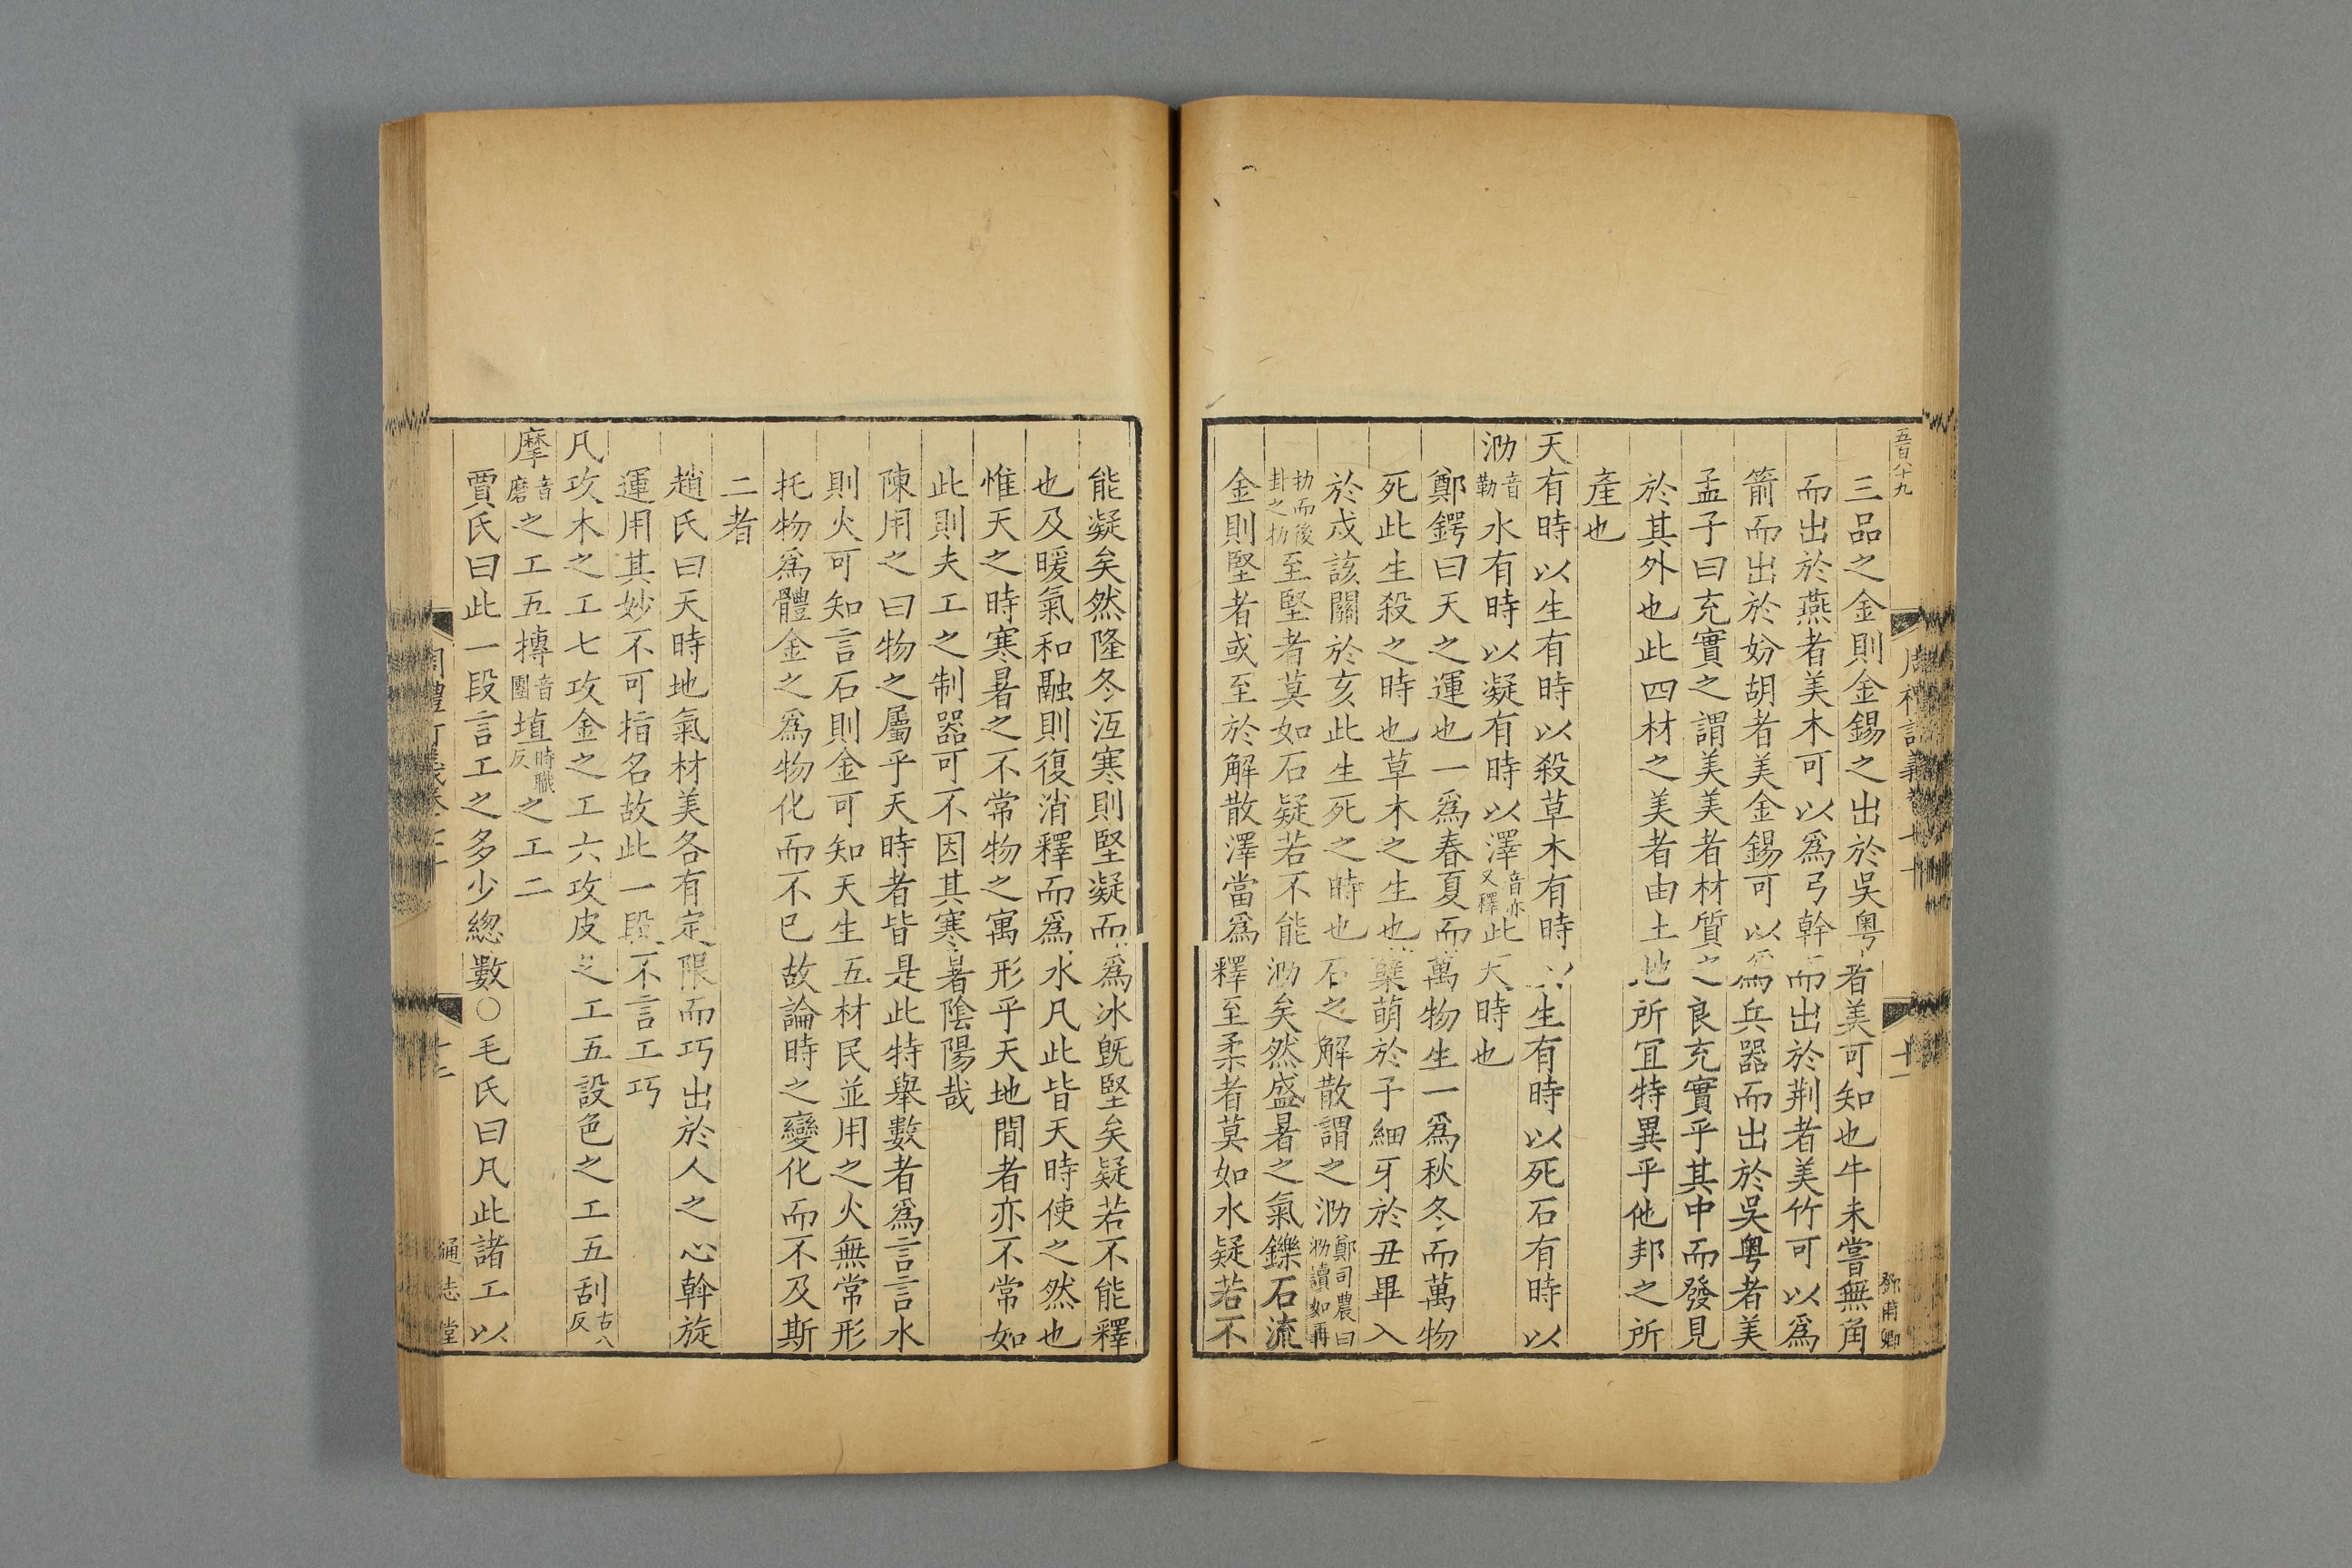 五百八十九
三品之金則金錫之出於吳粤者美可知也牛未嘗無角
而出於燕者美木可以爲弓幹而出於荆者美竹可以爲
箭而出於妢胡者美金錫可以爲兵器而出於吳粤者美
孟子曰充實之謂美美者材質之良充實乎其中而發見
於其外也此四材之美者由土地所宜特異乎他邦之所
產也
天有時以生有時以殺草木有時以生有時以死石有時以
泐音勒水有時以凝有時以澤音亦又釋此天時也
鄭鍔曰天之運也一爲春夏而萬物生一爲秋冬而萬物
死此生殺之時也草木之生也櫱萌於子細牙於丑畢入
於戍該闔於亥此生死之時也石之解散謂之泐鄭司農曰泐讀如再
扐而後卦之扐至堅者莫如石疑若不能泐矣然盛暑之氣鑠石流
金則堅者或至於解散澤當爲釋至柔者莫如水疑若不
能凝矣然隆冬沍寒則堅凝而爲冰旣堅矣疑若不能釋
也及暖氣和融則復消釋而爲水凡此皆天時使之然也
惟天之時寒暑之不常物之寓形乎天地間者亦不常如
此則夫工之制器可不因其寒暑陰陽哉
陳用之曰物之屬乎天時者皆是此特舉數者爲言言水
則火可知言石則金可知天生五材民並用之火無常形
托物爲體金之爲物化而不已故論時之變化而不及斯
二者
趙氏曰天時地氣材美各有定限而巧出於人之心斡旋
運用其妙不可指名故此一段不言工巧
凡攻木之工七攻金之工六攻皮之工五設色之工五刮古八反
摩音磨之工五摶音團埴時職反之工二
賈氏曰此一段言工之多少緫數○毛氏曰凡此諸工以
通志堂